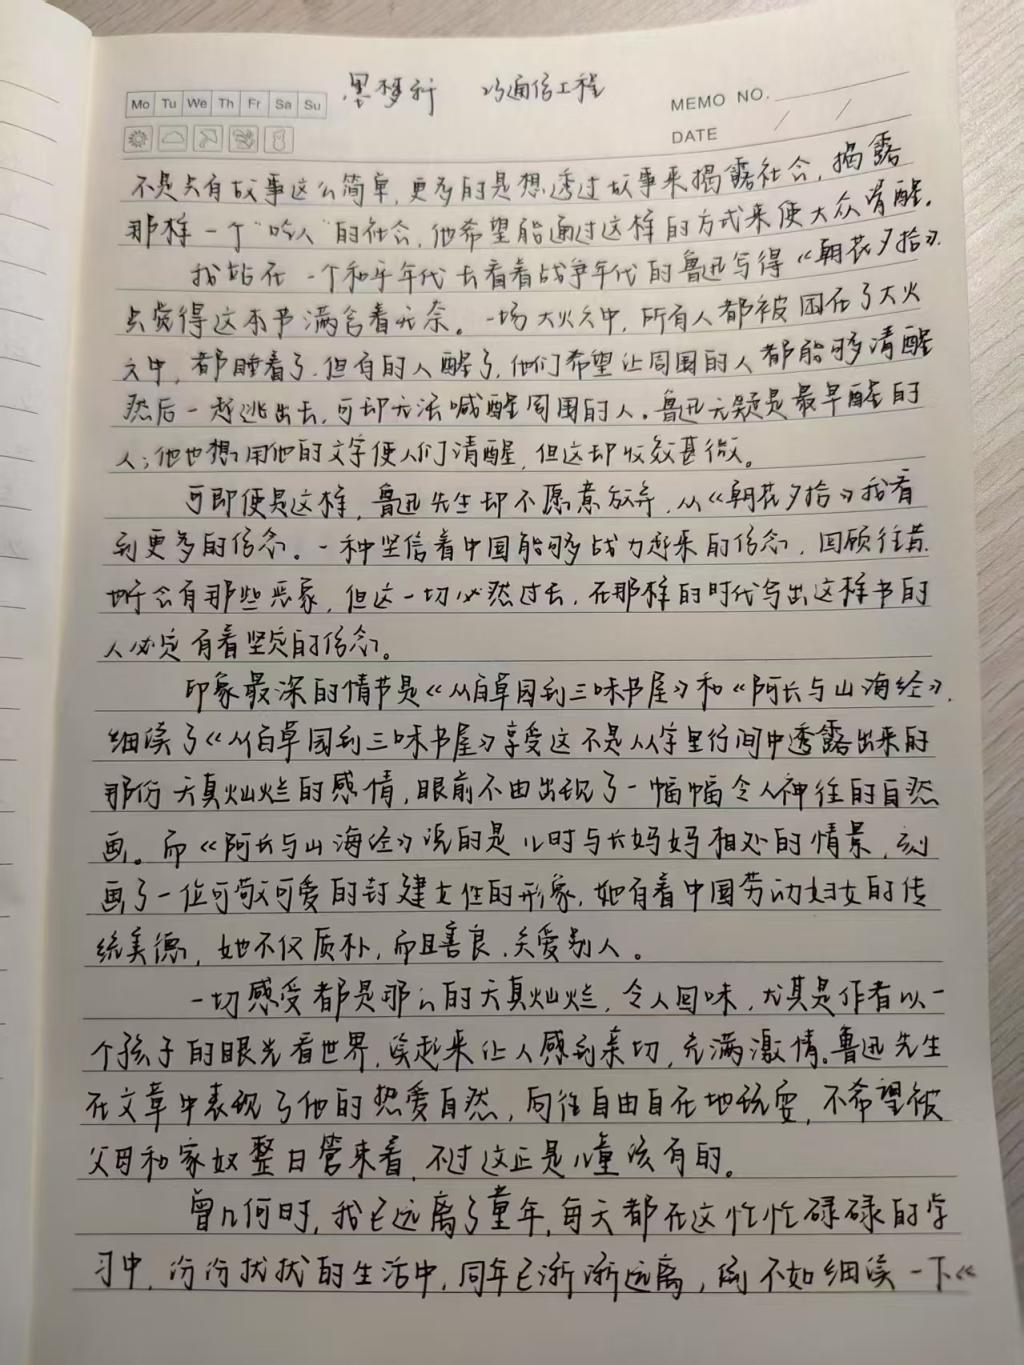 Mo Tu We Th Fr Sa Su
梦 通信工程
MEMO NO.
DATE
不是只有故事这么简单,更多的是想透过故事来揭露社会,揭露
那样一个“吃人”的社会,他希望能通过这样的方式来使大众清醒。
我站在一个和平年代去看着战争年代的鲁迅写得《朝花夕拾》,
只觉得这本书满含着无奈。一场大火之中,所有人都被困在了大火
之中,都睡着了,但有的人醒了,他们希望让周围的人都能够清醒
然后一起逃出去,可却无法喊醒周围的人。鲁迅无疑是最早醒的
人;他也想用他的文字使人们清醒,但这却收效甚微。
可即便是这样,鲁迅先生却不愿意放弃,从《朝花夕拾》我看
到更多的信念。一种坚信着中国能够战力起来的信念,回顾往昔
听会有那些恶象,但这一切必然过去,在那样的时代写出这样书的
人必定有着坚定的信念。
印象最深的情节是《从百草园到三味书屋》和《阿长与山海经》,
细读了《从百草园到三味书屋》享受这不是从字里行间中透露出来的
那份天真灿烂的感情,眼前不由出现了一幅幅令人神往的自然
画。而《阿长与山海经》说的是儿时与长妈妈相处的情景,刻
画了一位可敬可爱的封建女性的形象,她有着中国劳动妇女的传
统美德,她不仅质朴,而且善良、关爱别人。
一切感受都是那么的天真灿烂,令人回味,尤其是作者以一
个孩子的眼光看世界,读起来让人感到亲切,充满激情。鲁迅先生
在文章中表现了他的热爱自然,向往自由自在地玩耍,不希望被
父母和家奴整日管束着,不过这正是儿童该有的。
曾几何时,我已远离了童年,每天都在这忙忙碌碌的学
习中,纷纷扰扰的生活中,同年已渐渐远离,倒不如细读一下《